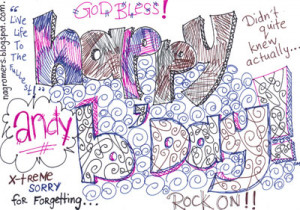 GOD BLESS!
"Live
Life To
The
Fullest"
happy
Didn't
quite
knew
actually...
nagromers.blogspot.com
andy
b'day!!
X-treme
SORRY
for Forgetting...
ROCK ON!!